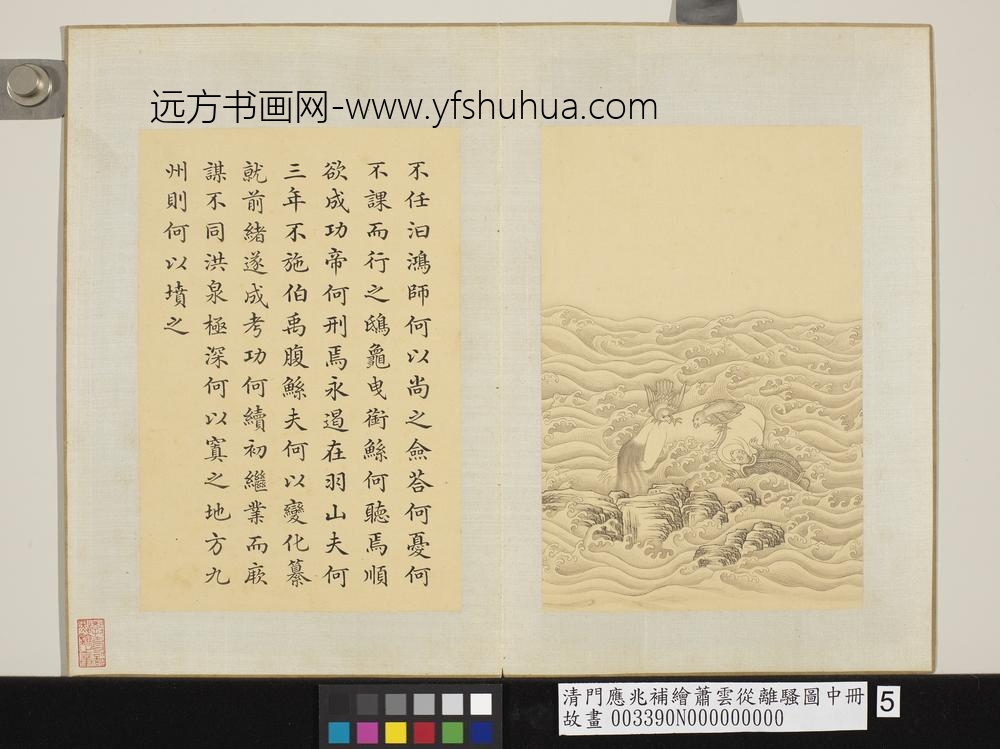 远方书画网-www.yfshuhua.com
不任汩鴻師何以尚之僉荅何憂何
不課而行之鴟龜曳銜鯀何聽焉順
欲成功帝何刑焉永遏在羽山夫何
三年不施伯禹腹鯀夫何以變化纂
就前緒遂成考功何續初繼業而厥
謀不同洪泉極深何以窴之地方九
州則何以墳之
清門應兆補繪蕭雲從離騷圖中冊
故畫 003390N000000000
5